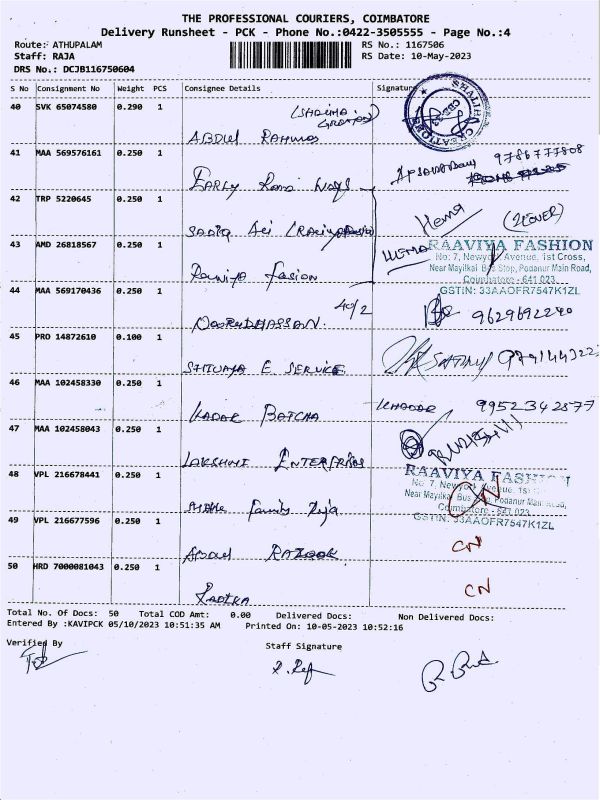 THE PROFESSIONAL COURIERS, COIMBATORE
Delivery Runsheet - PCK - Phone No.:0422-3505555 - Page No.:4
Route: ATHUPALAM
RS No.: 1167506
Staff: RAJA
RS Date: 10-May-2023
DRS No.: DCJB116750604
S No Consignment No Weight PCS Consignee Details Signature
40 SVK 65074580 0.290 1
ABDUL RAHMAN
SHALIHA CREATIONS
41 MAA 569576161 0.250 1
EARLY Ways
9786777808
42 TRP 5220645 0.250 1
SADIQ Ali
Hema
43 AMD 26818567 0.250 1
Fasion
HEMA
RAAVIYA FASHION
No: 7, Newyork Avenue, 1st Cross,
Near Mayilkal Bus Stop, Podanur Main Road,
Coimbatore - 641 023
GSTIN: 33AAOFR7547K1ZL
44 MAA 569170436 0.250 1
NOORUDHASSAN. 40/2
9629692240
45 PRO 14872610 0.100 1
E SERVICE
46 MAA 102458330 0.250 1
KADAR BATCHA
KHADAR 9952342877
47 MAA 102458043 0.250 1
LAKSHMI ENTERPRISES
48 VPL 216678441 0.250 1
Family
RAAVIYA FASHION
No: 7, Newyork Avenue, 1st
Near Mayilkal Bus Stop, Podanur Main Road,
Coimbatore - 641 023
GSTIN: 33AAOFR7547K1ZL
CN
49 VPL 216677596 0.250 1
ABDUL RAZOOK
CN
50 HRD 7000081043 0.250 1
RADIKA
CN
Total No. Of Docs: 50 Total COD Amt: 0.00 Delivered Docs: Non Delivered Docs:
Entered By :KAVIPCK 05/10/2023 10:51:35 AM Printed On: 10-05-2023 10:52:16
Verified By
Staff Signature